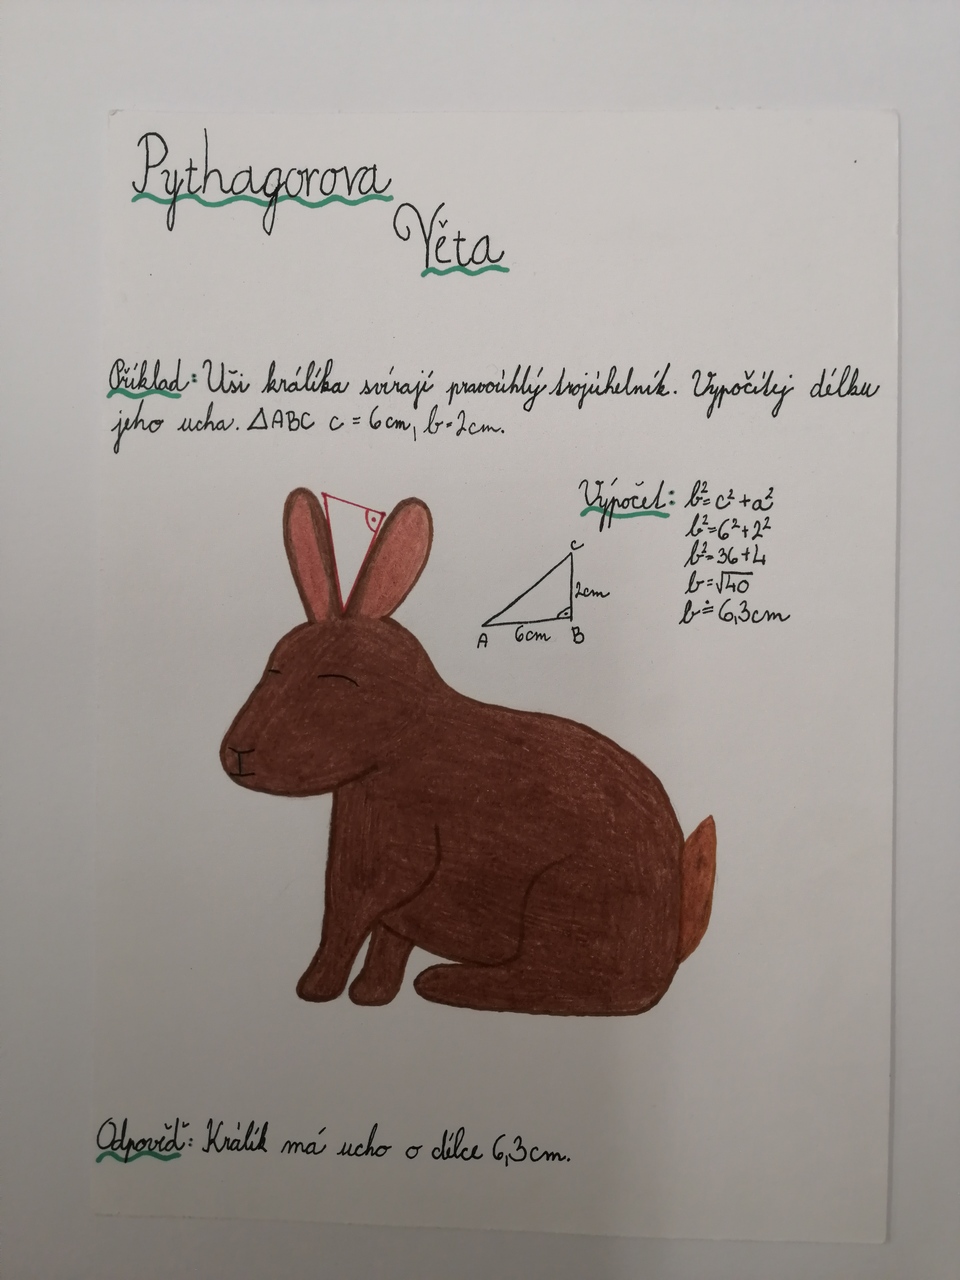 Pythagorova
Věta
Příklad: Uši králíka svírají pravoúhlý trojúhelník. Vypočítej délku
jeho ucha. △ABC c = 6cm, b=2cm.
Výpočet: b²=c²+a²
b²=6²+2²
b²=36+4
b=√40
b≐6,3cm
C
2cm
A
6cm
B
Odpověď: Králík má ucho o délce 6,3cm.